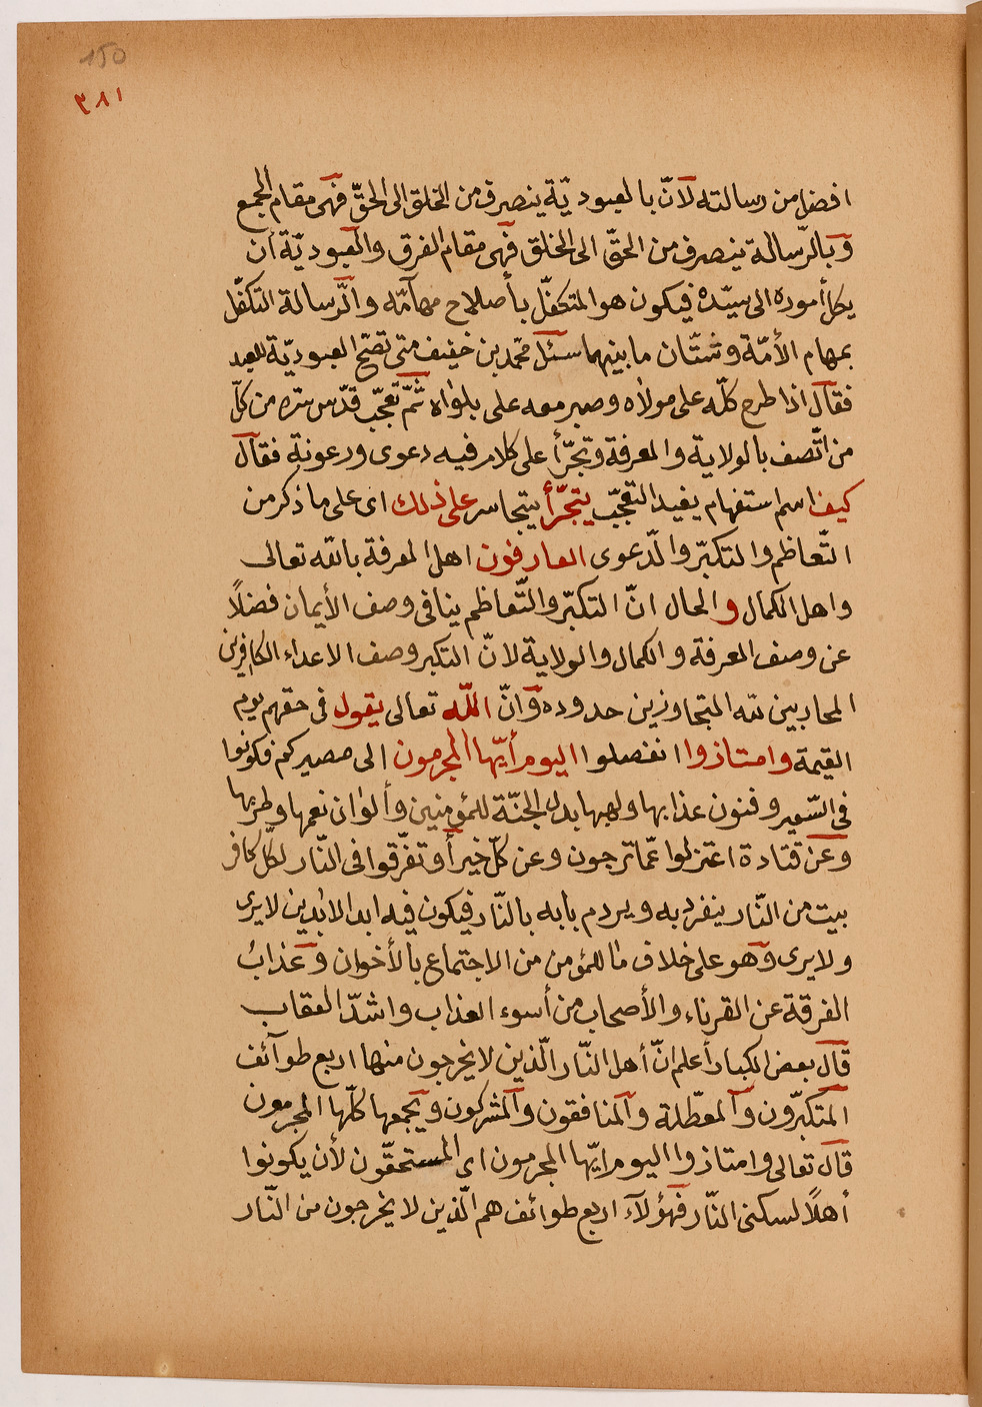 150
٣٨١
افضل من رسالته لانّ بالعبوديّة ينصرف من الخلق الى الحقّ فهى مقام الجمع
وبالرّسالة ينصرف من الحقّ الى الخلق فهى مقام الفرق والعبوديّة أن
يكل أموره الى سيّده فيكون هو المتكفّل بأصلاح مهامّه والرّسالة التكفّل
بمهام الأمّة وشتّان ما بينهما سئل محمّد بن خفيف متى تصّح العبوديّة للعبد
فقال اذا طرح كلّه على مولاه وصبر معه على بلواه ثمّ تعجّب قدّس سرّه من كلّ
من اتّصف بالولاية والمعرفة وتجّرأ على كلام فيه دعوى ورعونة فقال
كيف اسم استفهام يفيد التعجّب يتجّرأ يتجاسر على ذلك اى على ما ذكر من
التّعاظم والتكبّر والدّعوى العارفون اهل المعرفة بالله تعالى
واهل الكمال والحال انّ التكبّر والتّعاظم ينافى وصف الأيمان فضلاً
عن وصف المعرفة والكمال والولاية لانّ التكبر وصف الاعداء الكافرين
المحاربين لله المتجاوزين حدوده وانّ اللّه تعالى يقول فى حقهم يوم
القيمة وامتازوا انفصلوا اليوم أيّها المجرمون الى مصيركم فكونوا
فى السّعير وفنون عذابها ولهبها بدل الجنّة للمؤمنين وألوان نعمها وطربها
وعن قتادة اعتزلوا عمّا ترجون وعن كلّ خير أو تفرّقوا فى النّار لكلّ كافر
بيت من النّار ينفرد به ويردم بابه بالنّار فيكون فيه ابد الابدين لا يرى
ولا يرى وهو على خلاف ما للمؤمن من الاجتماع بالأخوان وعذاب
الفرقة عن القرناء والأصحاب من أسوء العذاب واشدّ العقاب
قال بعض الكبار أعلم انّ أهل النّار الّذين لا يخرجون منها اربع طوآئف
المتكبّرون والمعطّلة والمنافقون والمشركون ويجمعها كلّها المجرمون
قال تعالى وامتازوا اليوم ايّها المجرمون اى المستحقّون لأن يكونوا
أهلاً لسكنى النّار فهؤلآء اربع طوائف هم الّذين لا يخرجون من النّار